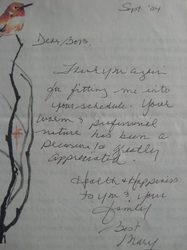 Sept. '04
Dear Boss,
Thank you again
for fitting me into
your schedule. Your
warm & professional
nature has been a
pleasure & greatly
appreciated.
Health & Happiness
to you & your
family
Best
Mary